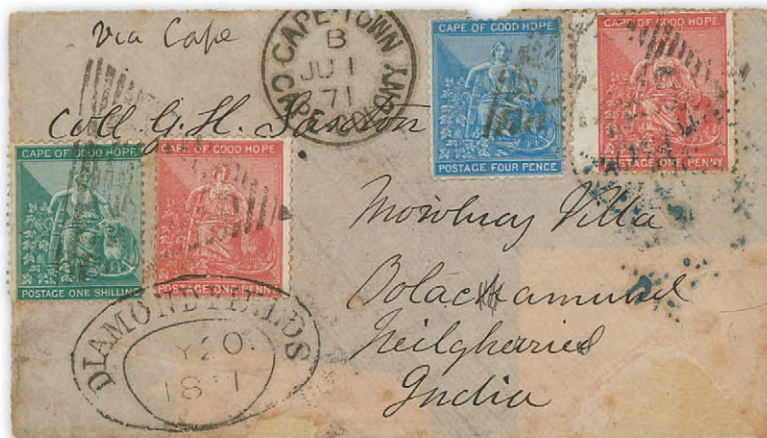 via Cape
CAPE TOWN
B
JU 1
71
CAPE COLONY
CAPE OF GOOD HOPE
POSTAGE FOUR PENCE
CAPE OF GOOD HOPE
POSTAGE ONE PENNY
Coll G. H. Saxton
CAPE OF GOOD HOPE
POSTAGE ONE SHILLING
CAPE OF GOOD HOPE
POSTAGE ONE PENNY
Villa
Neilgherries
India
DIAMONDFIELDS
Y20
18 1